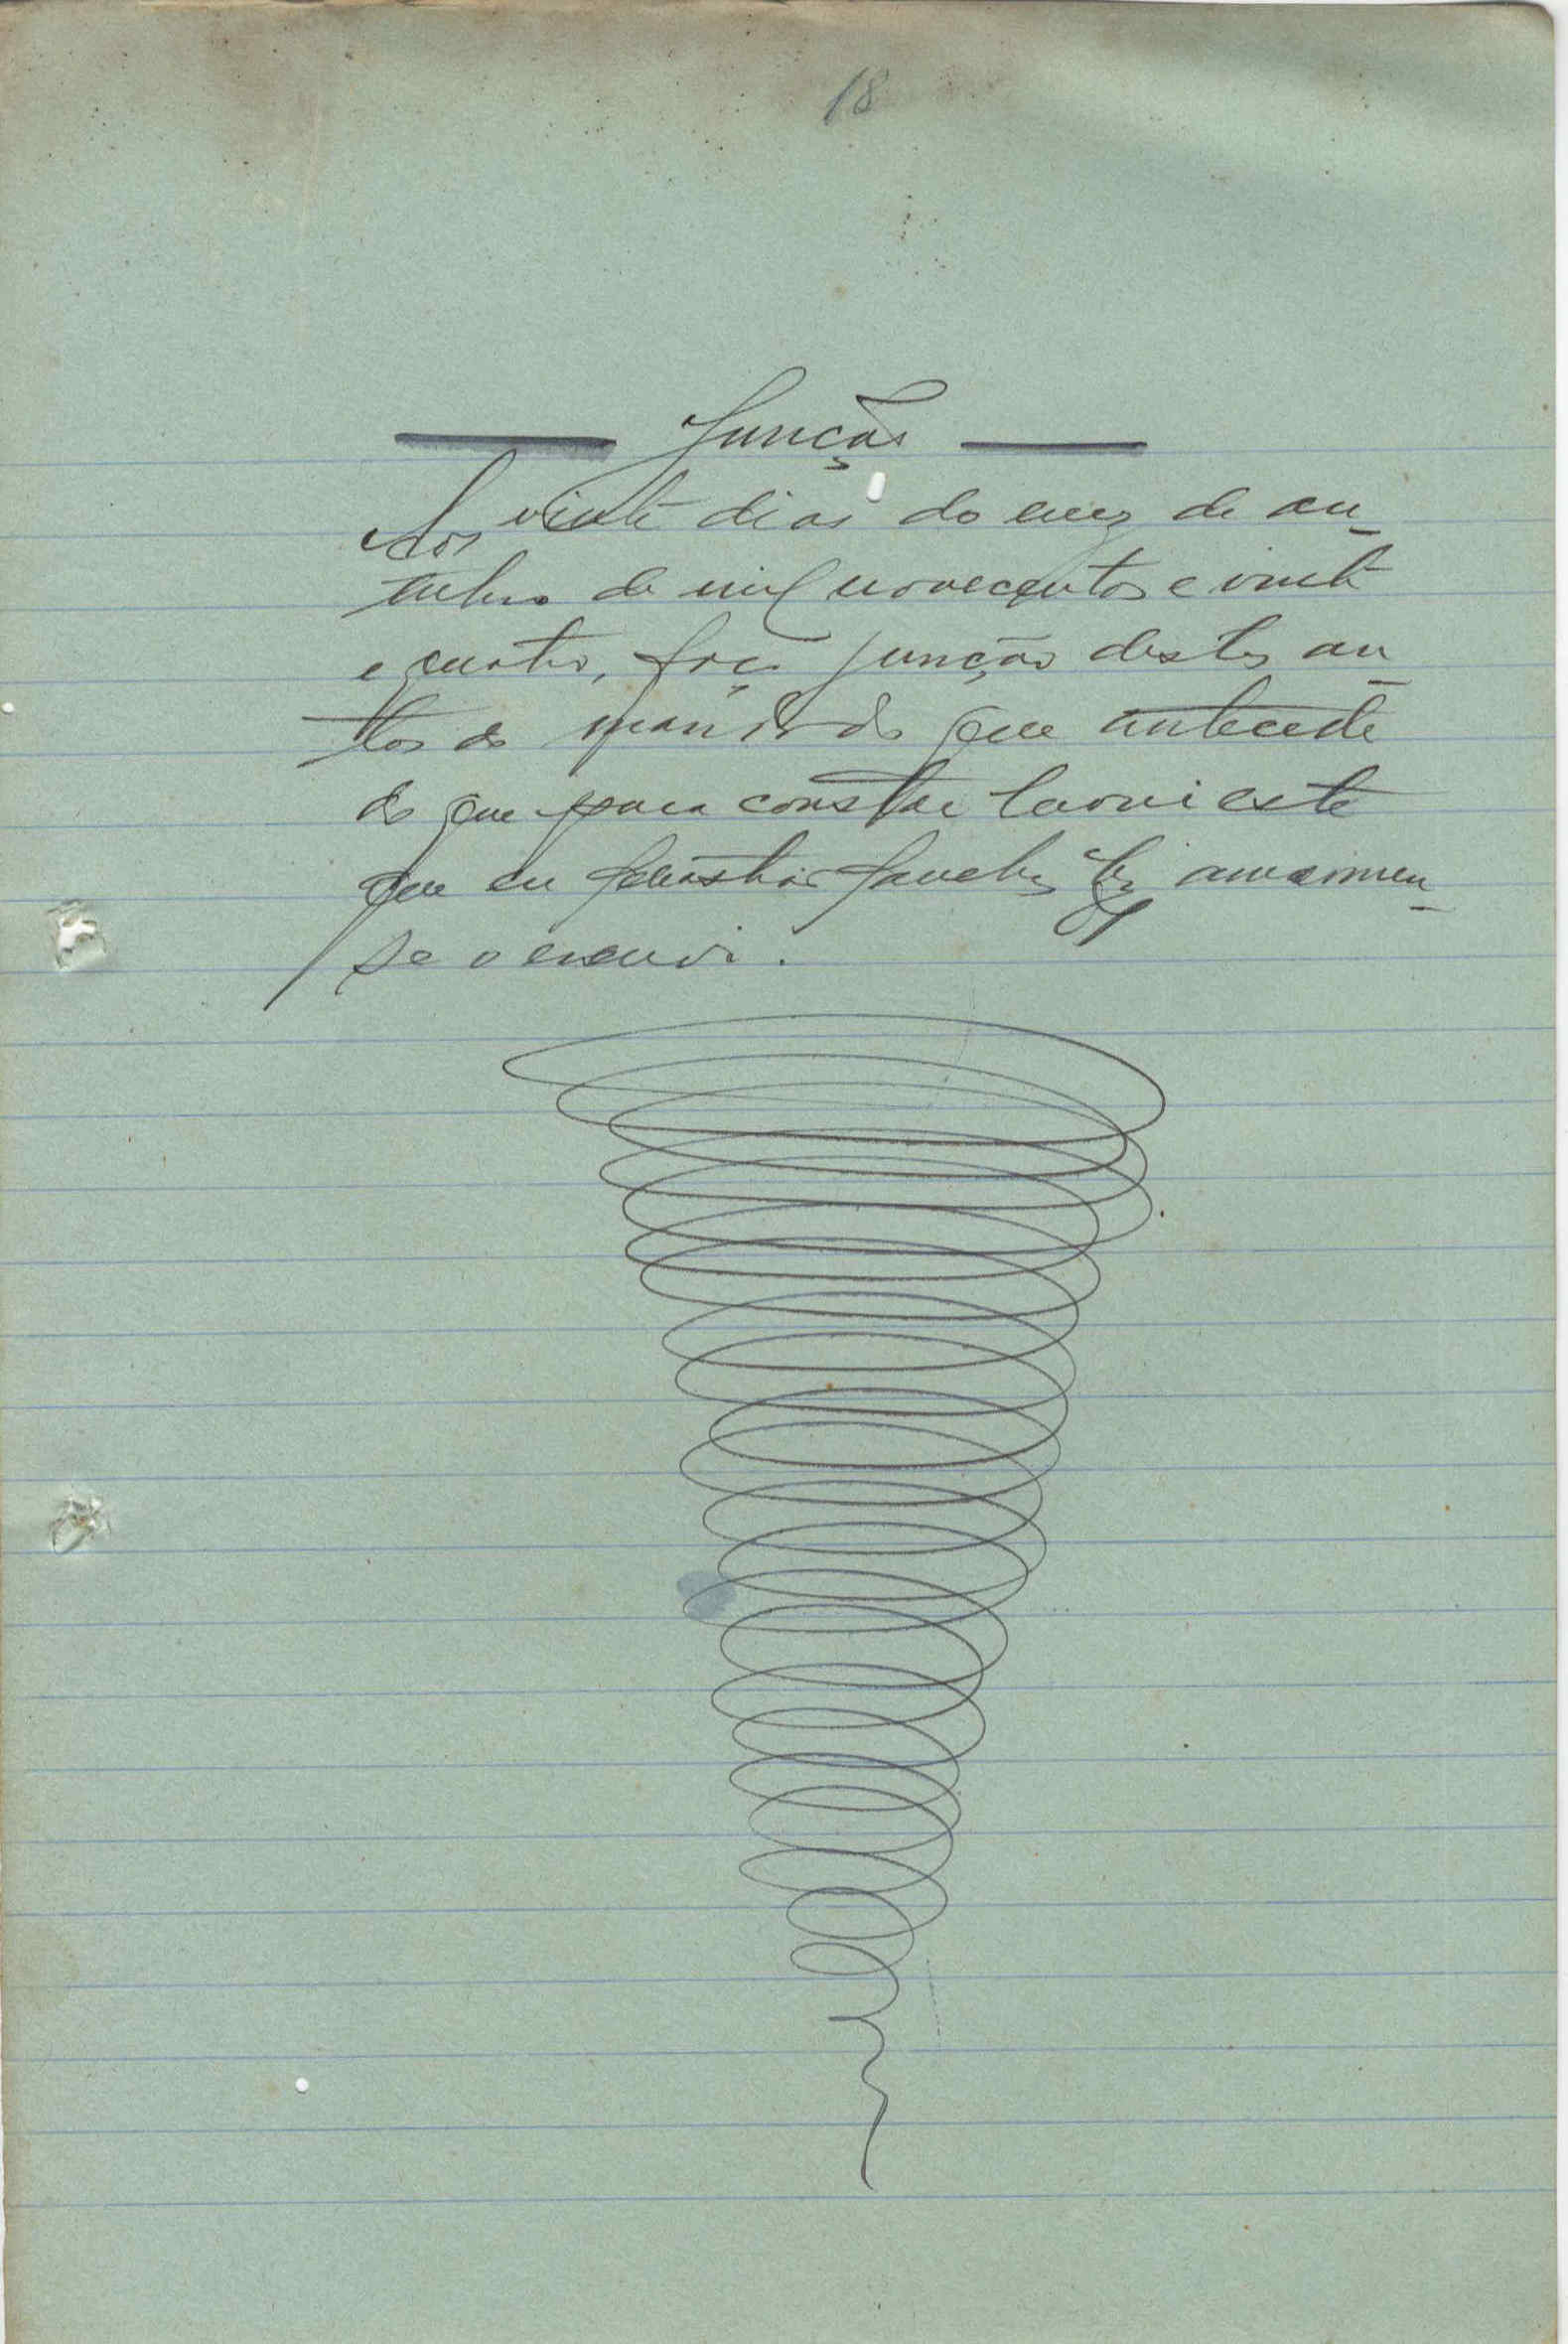 18
Juncção
Aos vinte dias do mez de ou_
tubro de mil novecentos e vinte
e quatro, faço junção destes au_
tos do mandado que antecede
do que para constar lavrei este
que eu Sebastião Sanches
se o escrevi.